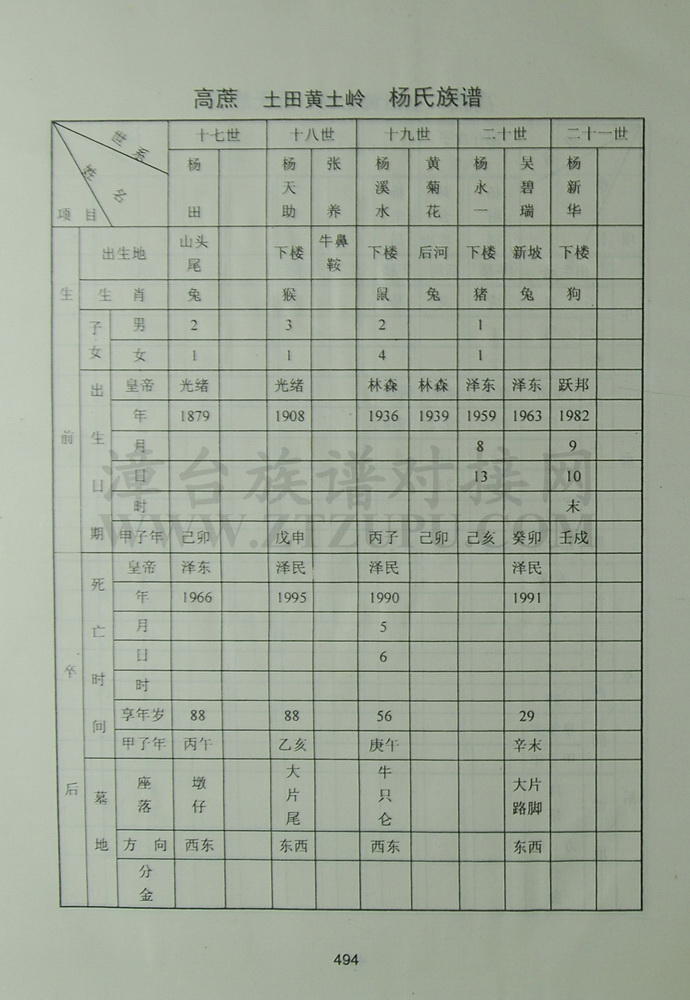 高蔗 土田黄土岭 杨氏族谱
世系 十七世 十八世 十九世 二十世 二十一世
姓名 杨田 杨天助 张养 杨溪水 黄菊花 杨永一 吴碧瑞 杨新华
项目
生前 出生地 山头尾 下楼 牛鼻鞍 下楼 后河 下楼 新坡 下楼
生肖 兔 猴 鼠 兔 猪 兔 狗
子女 男 2 3 2 1
女 1 1 4 1
出生日期 皇帝 光绪 光绪 林森 林森 泽东 泽东 跃邦
年 1879 1908 1936 1939 1959 1963 1982
月 8 9
日 13 10
时 末
甲子年 己卯 戊申 丙子 己卯 己亥 癸卯 壬戍
卒后 死亡时间 皇帝 泽东 泽民 泽民 泽民
年 1966 1995 1990 1991
月 5
日 6
时
享年岁 88 88 56 29
甲子年 丙午 乙亥 庚午 辛末
墓地 座落 墩仔 大片尾 牛只仑 大片路脚
方向 西东 东西 西东 东西
分金
漳台族谱对接网
WWW.ZTZUPU.COM
494